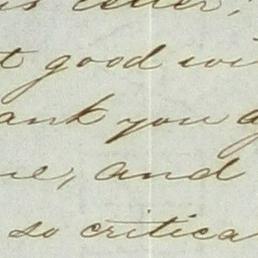 letter,
t good wi
ank you
ne, and
so critica